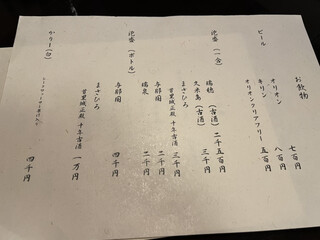 お飲物
ビール
オリオン 七百円
キリン 八百円
オリオンクリアフリー 五百円
泡盛(一合)
瑞穂(古酒) 二千五百円
久米島(古酒) 三千円
まさひろ
首里城正殿 千年古酒 三千円
与那国 二千円
瑞泉 二千円
泡盛(ボトル)
与那国 四千円
まさひろ
首里城正殿 千年古酒 一万円
かりー(白)
四千円